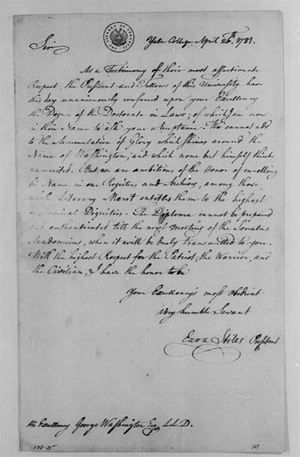 Sir
Yale College April 26th 1781.
As a Testimony of their most affectionate
Respect, the President and Fellows of this University have
this day unanimously conferred upon your Excellency
the Degree of the Doctorate in Laws; of which I am now
in their Name to ask your Acceptance. We cannot add
to the Accumulation of Glory which shines around the
Name of Washington, and which none but himself thinks
unmerited. But we are ambitious of the Honor of enrolling
the Name in our Registers and Archives, among those
whose Literary Merit entitles them to the highest
academical Dignities. The Diploma cannot be prepared
and authenticated till the next meeting of the Senatus
Academicus, when it will be duly transmitted to you.
With the highest Respect for the Patriot, the Warrior, and
the Civilian, I have the honor to be
Your Excellency's most Obedient
very humble Servant
Ezra Stiles President
His Excellency George Washington Esq LL.D.